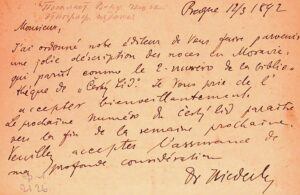 Prague 12/3 1892
Monsieur,
J'ai ordonné notre éditeur de Vous faire parvenir
une jolie description des noces en Moravie,
qui paraît comme le 2-numéro de la biblio-
thèque de „Český Lid". Je Vous prie de l'
accepter bienveillantement.
Le prochain numéro de Český Lid paraîtra
vers la fin de la semaine prochaine.
Veuillez accepter l'assurance de
ma profonde considération
Dr Niederle
2126